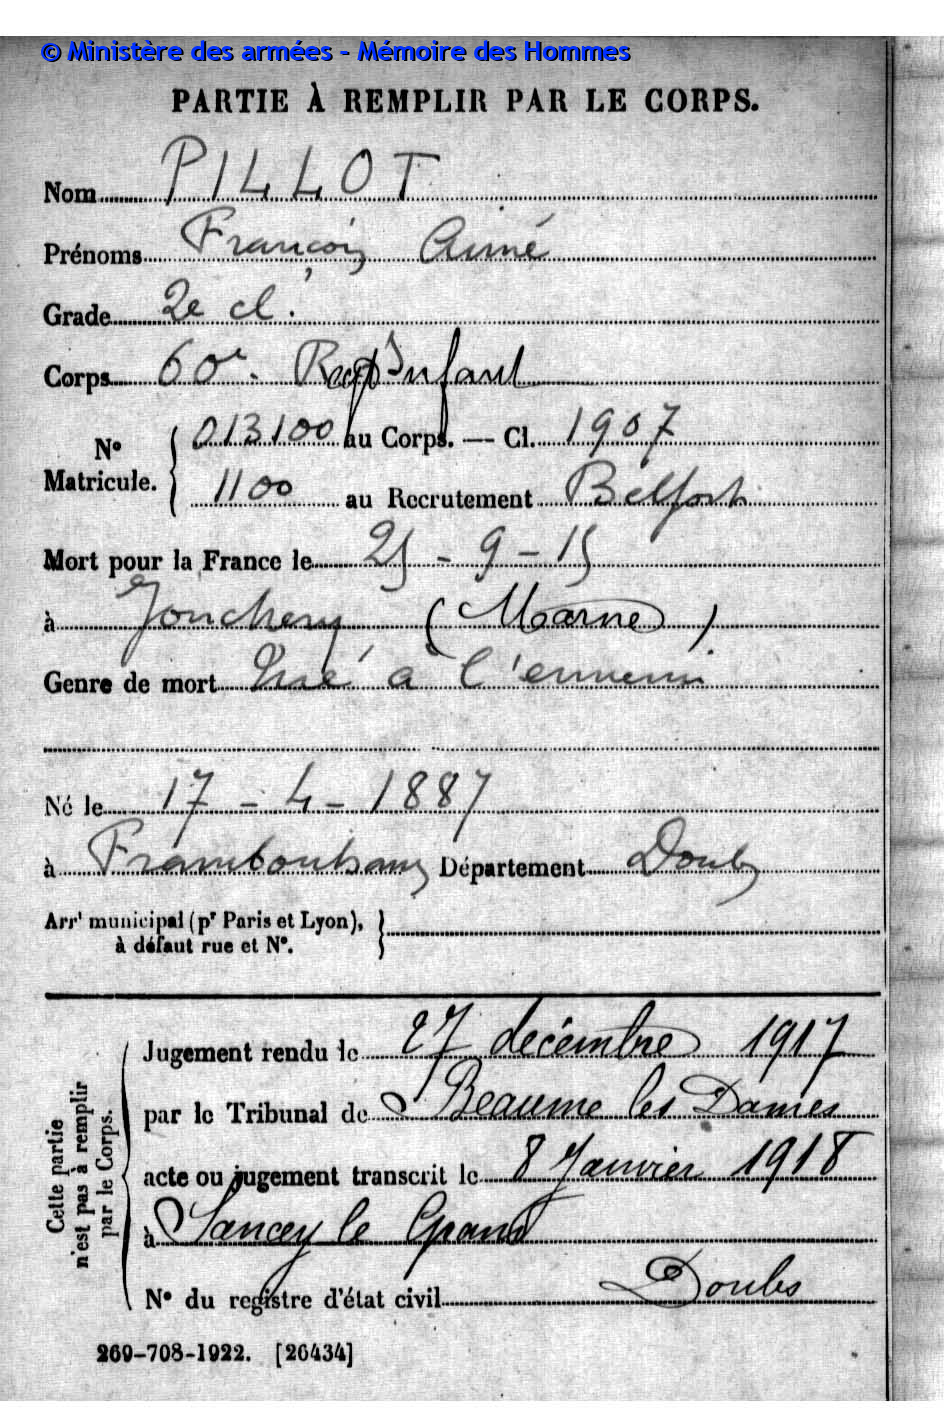 © Ministère des armées - Mémoire des Hommes
PARTIE À REMPLIR PAR LE CORPS.
Nom PILLOT
Prénoms François Aimé
Grade 2e cl.
Corps 60e Regt Infant
N° Matricule. 013100 au Corps. — Cl. 1907
1100 au Recrutement Belfort
Mort pour la France le 25-9-15
à Jonchery (Marne)
Genre de mort Tué à l'ennemi
Né le 17-4-1887
à Département Doubs
Arrt municipal (pr Paris et Lyon),
à défaut rue et N°.
Cette partie
n'est pas à remplir
par le Corps.
Jugement rendu le 27 décembre 1917
par le Tribunal de Beaume les Dames
acte ou jugement transcrit le 8 Janvier 1918
à Sancey le Grand
N° du registre d'état civil Doubs
269-708-1922. [26434]